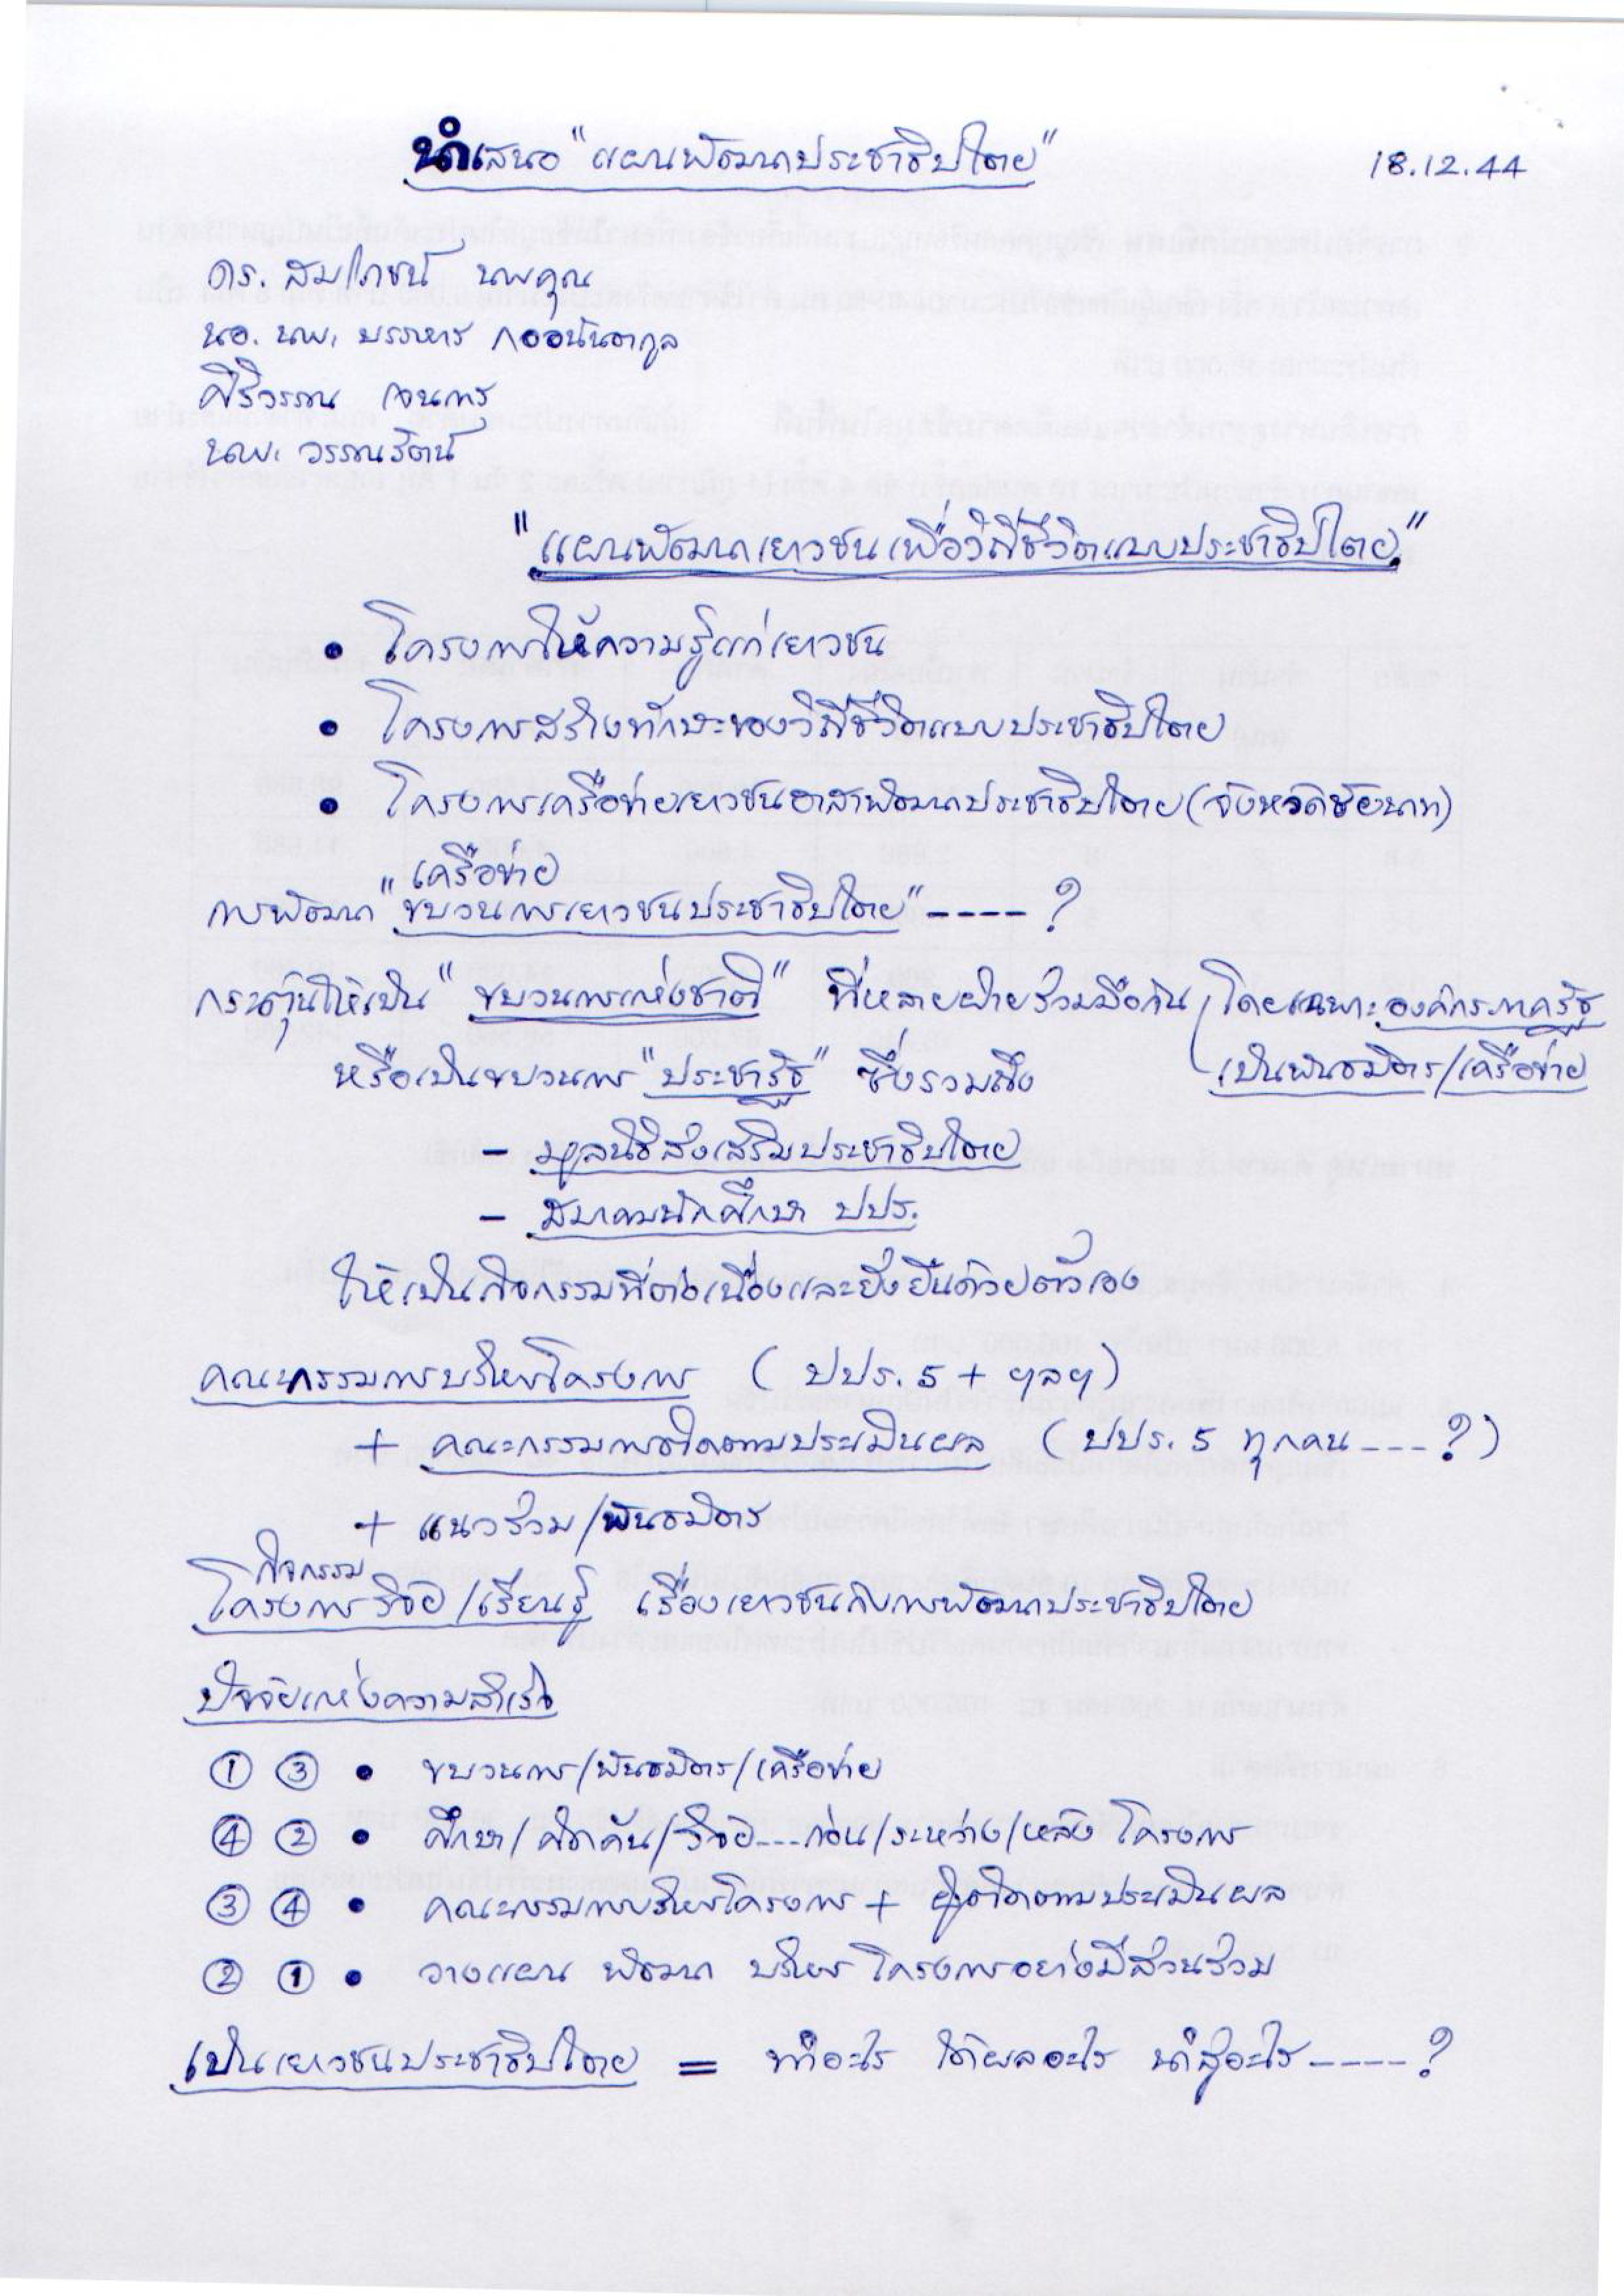 นำเสนอ "แผนพัฒนาประชาธิปไตย"
18.12.44
ดร. สมโภชน์ นพคุณ
นอ. นพ. บรรหาร กออนันตกูล
ศิริวรรณ
นพ. วรรณรัตน์
"แผนพัฒนาเยาวชนเพื่อวิถีชีวิตแบบประชาธิปไตย"
• โครงการให้ความรู้แก่เยาวชน
• โครงการสร้างทักษะของวิถีชีวิตแบบประชาธิปไตย
• โครงการเครือข่ายเยาวชนอาสาพัฒนาประชาธิปไตย (จังหวัดชัยนาท)
เครือข่าย
การพัฒนา "ขบวนการเยาวชนประชาธิปไตย" ---- ?
กระตุ้นให้เป็น "ขบวนการแห่งชาติ" ที่หลายฝ่ายร่วมมือกัน (โดยเฉพาะองค์กรภาครัฐ
เป็นพันธมิตร/เครือข่าย
หรือเป็นขบวนการ "ประชารัฐ" ซึ่งรวมถึง
- มูลนิธิส่งเสริมประชาธิปไตย
- สมาคมนักศึกษา ปปร.
ให้เป็นกิจกรรมที่ต่อเนื่องและยั่งยืนด้วยตัวเอง
คณะกรรมการบริหารโครงการ ( ปปร. 5 + ฯลฯ )
+ คณะกรรมการติดตามประเมินผล ( ปปร. 5 ทุกคน --- ? )
+ แนวร่วม/พันธมิตร
กิจกรรม
โครงการวิจัย/เรียนรู้ เรื่องเยาวชนกับการพัฒนาประชาธิปไตย
ปัจจัยแห่งความสำเร็จ
① ③ • ขบวนการ/พันธมิตร/เครือข่าย
④ ② • ศึกษา/คิดค้น/วิจัย---ก่อน/ระหว่าง/หลัง โครงการ
③ ④ • คณะกรรมการบริหารโครงการ + ผู้ติดตามประเมินผล
② ① • วางแผน พัฒนา บริหาร โครงการอย่างมีส่วนร่วม
เป็นเยาวชนประชาธิปไตย = ทำอะไร ได้ผลอะไร นำสู่อะไร ---- ?